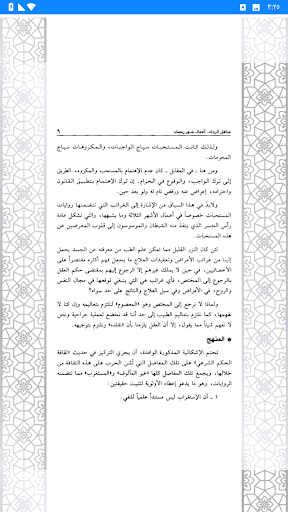 ٣:٢٥
مناهل الرجاء، أعمال شهر رمضان ٩
ولذلك كانت المستحبات سياج الواجبات، والمكروهات سياج
المحرمات.
ومن هنا ـ في المقابل ـ كان عدم الإهتمام بالمستحب والمكروه، الطريق
إلى ترك الواجب، والوقوع في الحرام. إن ترك الإهتمام بتطبيق القانون
واحترامه، إعراض عنه ورفض تام له ولو بعد حين.
ولابدّ في هذا السياق من الإشارة إلى الغرائب التي تتضمنها روايات
المستحبات خصوصاً في أعمال الأشهر الثلاثة وما يشبهها، والتي تشكل عادة
رأس الجسر الذي ينفذ منه الشيطان والموسوسون إلى قلوب المعرضين عن
هذه المستحبات.
لئن كان النزر القليل مما تمكن علم الطب من معرفته عن الجسد يحمل
إلينا من غرائب الأمراض وتعقيدات العلاج ما يجعل فهم أكثره مقتصراً على
الأخصائيين، في حين لا يملك غيرهم إلا الرجوع إليهم بمقتضى حكم العقل
بالرجوع إلى المختص، فأي غرائب هي التي ينبغي توقعها في مجال النفس
والروح، في الأمراض وفي سبل العلاج والنتائج على حد سواء؟
ولماذا لا نرجع إلى المختص وهو «المعصوم» لنلتزم بتعاليمه وإن كنا لا
نفهمها، كما نلتزم بتعاليم الطبيب إلى حد أننا قد نخضع لعملية جراحية ونحن
لا نفهم شيئاً مما يقول، إلا أن العقل يلزمنا بأن «نقلده» ونلتزم بتوجيهه.
* المنهج
تحتم الإشكالية المذكورة الوافدة، أن يجري التركيز في حديث «ثقافة
الحكم الشرعي» على تلك المفاصل التي تُشن الحرب على هذه الثقافة من
خلالها، ويجمع تلك المفاصل كلها «غير المألوف» و«المستغرب» مما تتضمنه
الروايات، وهو ما يدعو إعطاء الأولوية لتثبيت حقيقتين:
١ ـ أن الإستغراب ليس مستنداً علمياً للنفي.